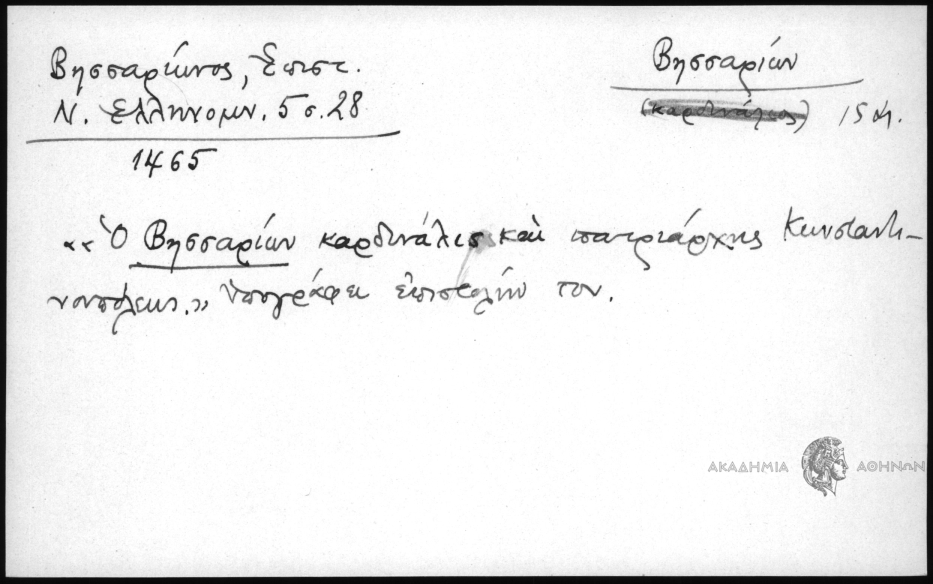 Βησσαρίωνος, Ἐπιστ.
Ν. Ἑλληνομν. 5 σ. 28
1465
Βησσαρίων
(καρδινάλιος) 15 αι.
«Ὁ Βησσαρίων καρδινάλις καὶ πατριάρχης Κωνσταντι-
νουπόλεως.» Ὑπογράφει ἐπιστολήν του.
ΑΚΑΔΗΜΙΑ ΑΘΗΝΩΝ